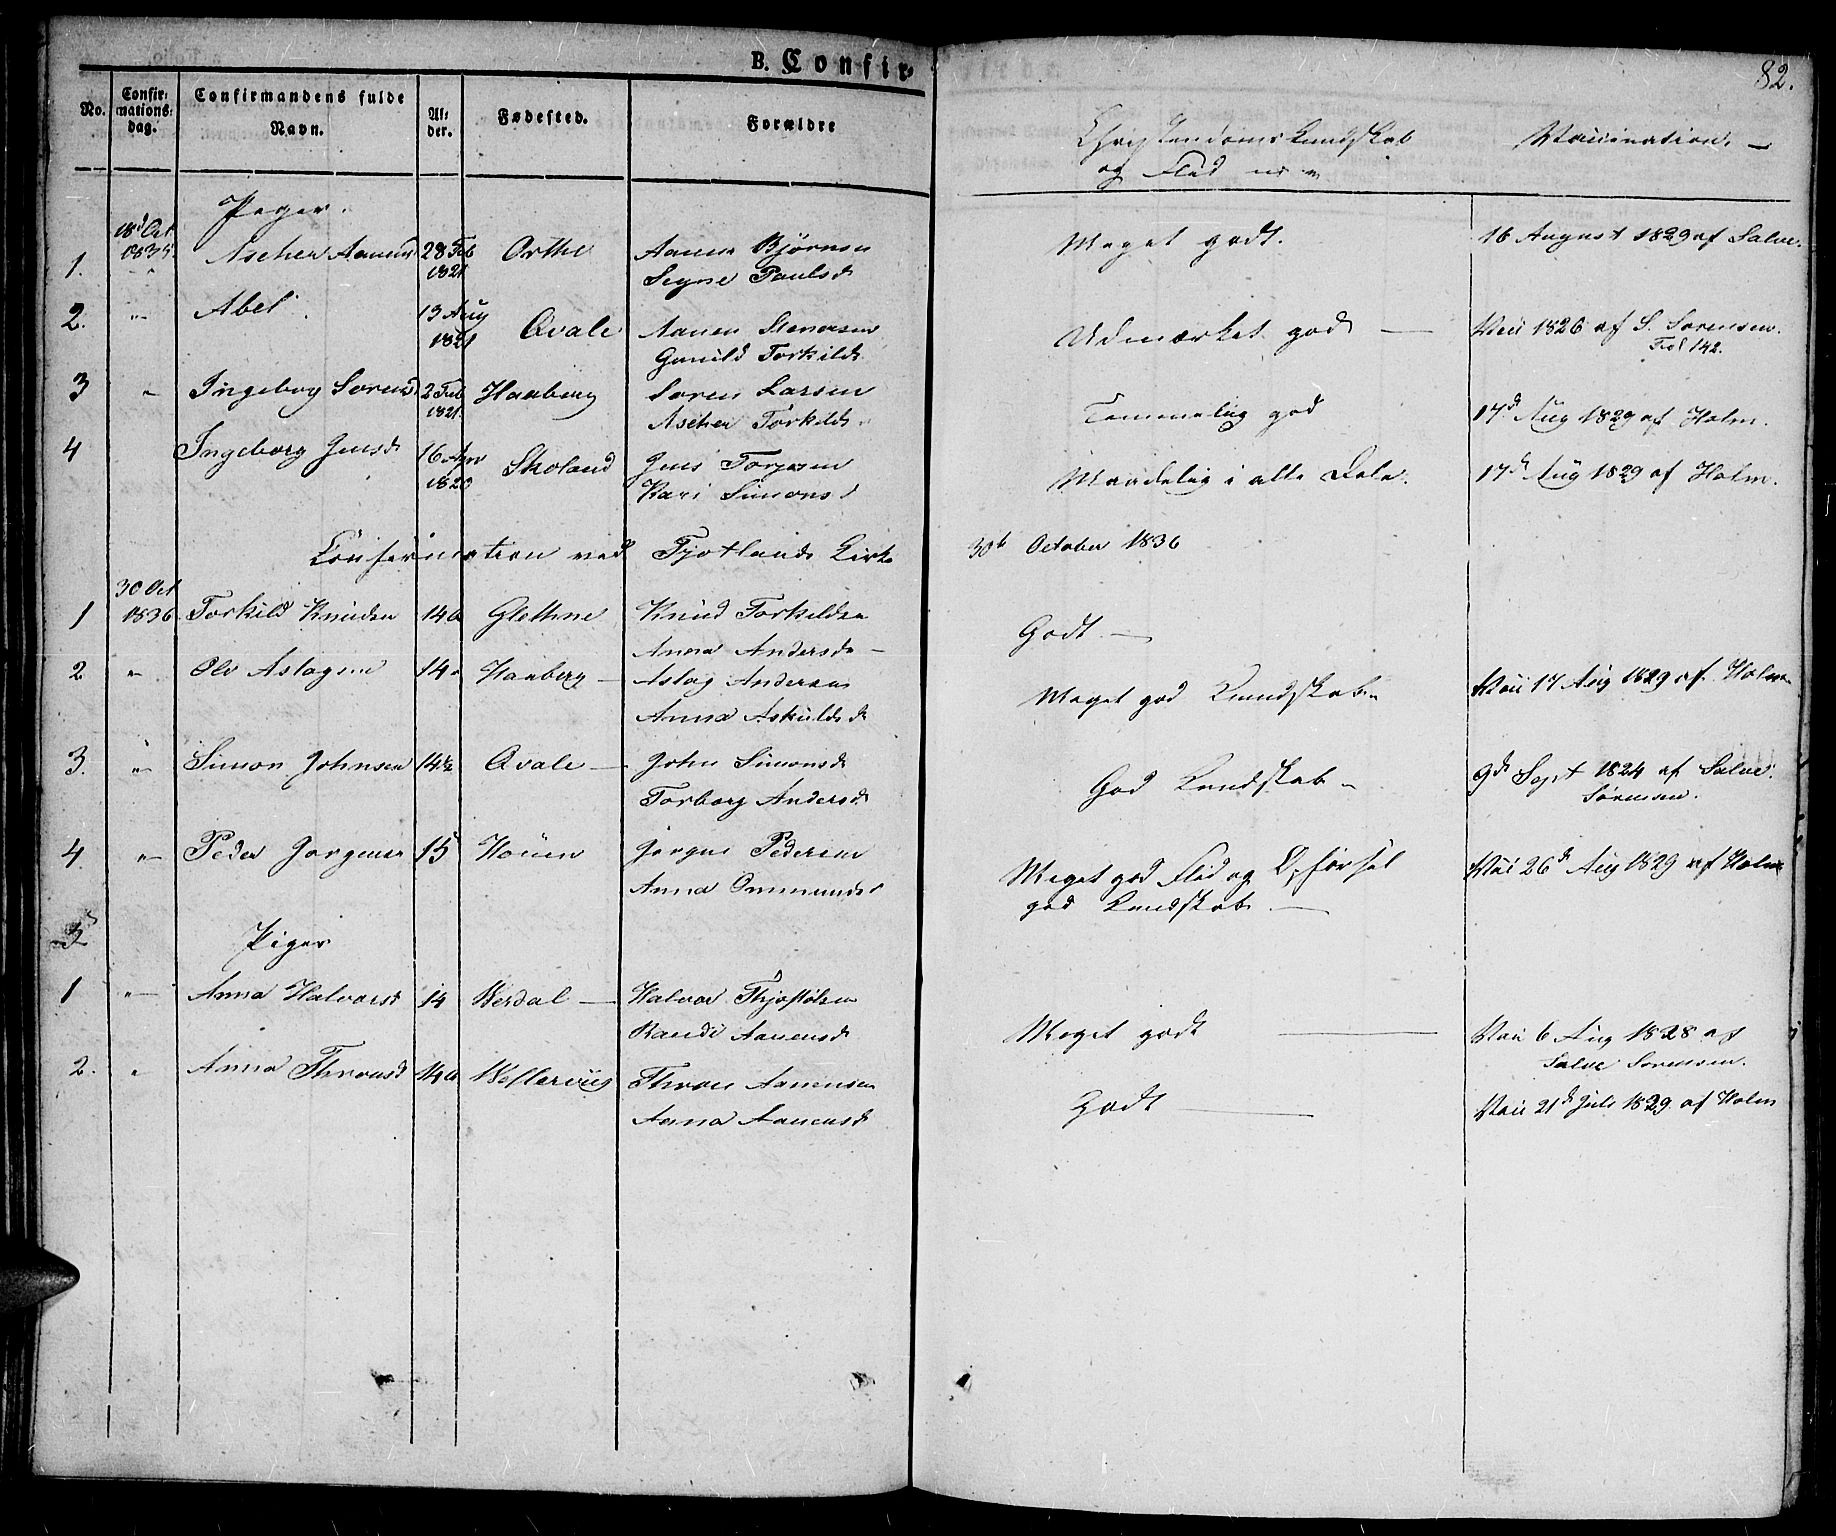 B. Confir-
82.
No.
Confir-
mations-
dag.
Confirmandens fulde
Navn.
Al-
der.
Fødested.
Forældre
Christendoms Kundskab
og Flid
Vaccination. —
Piger.
1. 18d Oct 1835 Ascher Aanens 28 Feb 1821 Orthe Aanen Bjørnsen
Segne Paulsd
Meget godt. 16 August 1829 af Salve.
2. " Abel 13 Aug 1821 Qvale Aanen Stenersen
Gunild Torkilds
Udmærket god — Vac 1826 af S. Sørensen.
Fol 142.
3 " Ingeborg Sørens 2 Feb 1821. Haaberg Søren Larsen
Ascher Torkilds
Temmelig god 17d Aug 1829 af Holm.
4 Ingeborg Jensd 16 Apr 1820 Skoland Jens Torgersen
Kari Simonsd
Maadelig i alle Dele. 17d Aug 1829 af Holm.
Confirmation ved Fjotlands Kirke 30te October 1836
1 30 Oct 1836 Torkild Knudsen 14 a Glethne Knud Torkildsen
Anna Andersd —
Godt —
2 " Ole Aslagsen 14 Haaberg — Aslag Andersen
Anna Askildsd
Meget god Kundskab Vac 17 Aug 1829 af Holm
3. " Simon Johnsen 14½ Qvale — John Simonsd
Torborg Andersd
God Kundskab 9d Sept 1824 af Salve
Sørensen.
4 " Peder Jørgensen 15 Houen Jørgen Pedersen
Anna Ommundsd
Meget god Flid og Opførsel
god Kundskab — Vac 26d Aug 1829 af Holm
Piger
1 " Anna Halvorsd 14 Verdal — Halvor Thjostølsen
Randi Aanensd
Meget godt — Vac 6 Aug 1828 af
Salve Sørensen.
2. " Anna Thronsd 14 a Thron Aanensen
Anna Aanensd
Godt — Vac 21d Juli 1829 af Holm